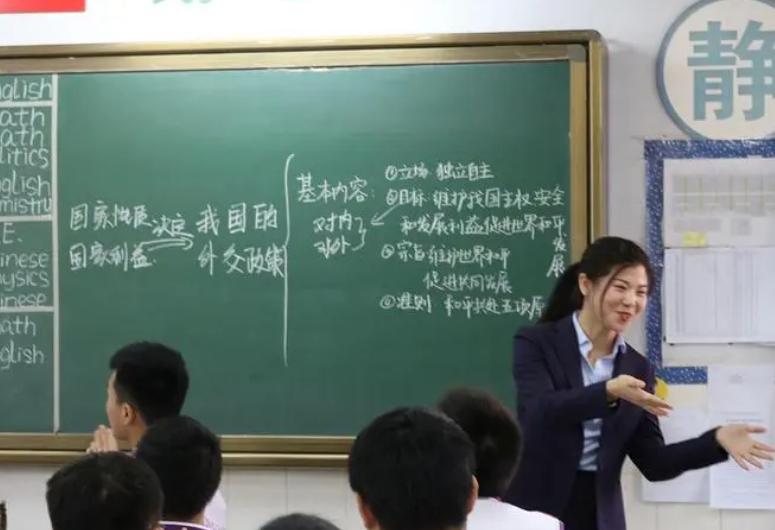 glish
ath
ath
litics
nglish
mistry
E.
inese
ysics
inese
ath
glish
国家性质
决定
国家利益
我国的
外交政策
基本内容:
对内
对外
①立场 独立自主
②目标 维护我国主权 安全
和发展利益 促进世界和平
发展
③宗旨 维护世界和平
促进共同发展
④准则 和平共处五项原
静